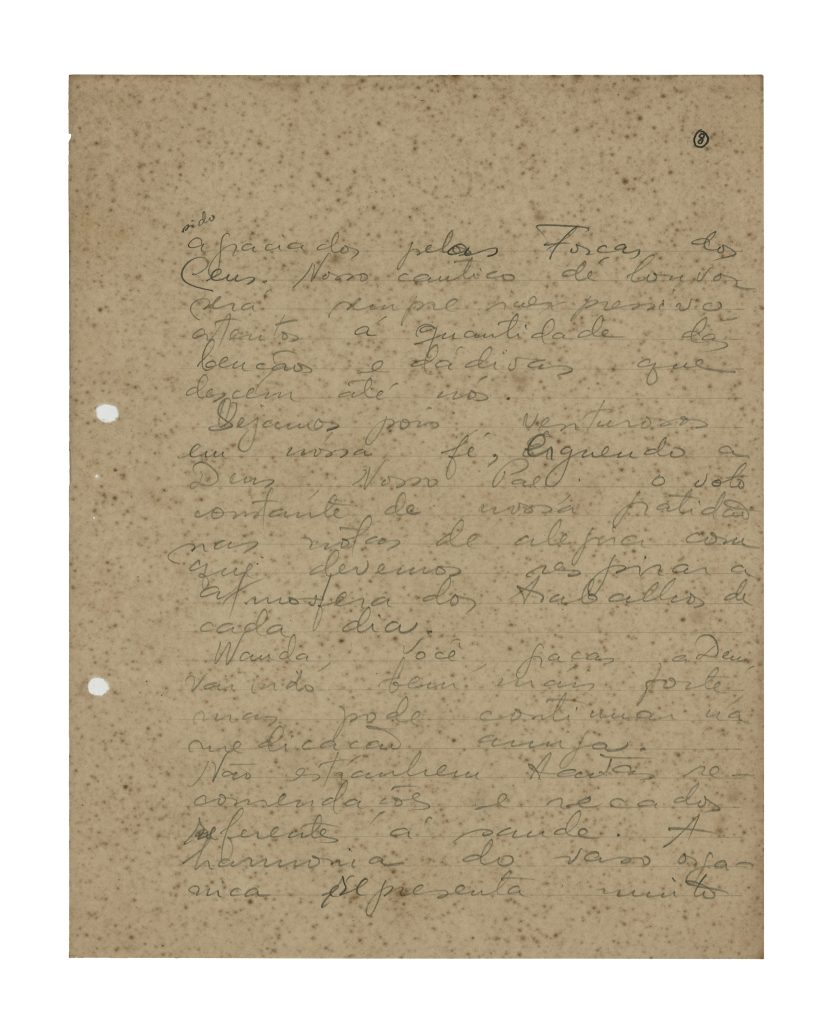 8
sido
agraciados pelas Forças dos
Ceus. Nosso cantico de louvor
será sempre inexpressivo
atentos á quantidade das
bençãos e dádivas que
descem até nós.
Sejamos pois venturosos
em nossa fé, Erguendo a
Deus, Nosso Pae o voto
constante de nossa gratidão
nas nótas de alegria com
que devemos respirar a
atmosfera dos trabalhos de
cada dia.
Wanda, você, graças a Deus,
vai indo bem mais forte,
mas pode continuar na
medicacão amiga.
Não estranhem tantas re-
comendações e recados
referentes á saude. A
harmonia do vaso orga-
nico representa muito